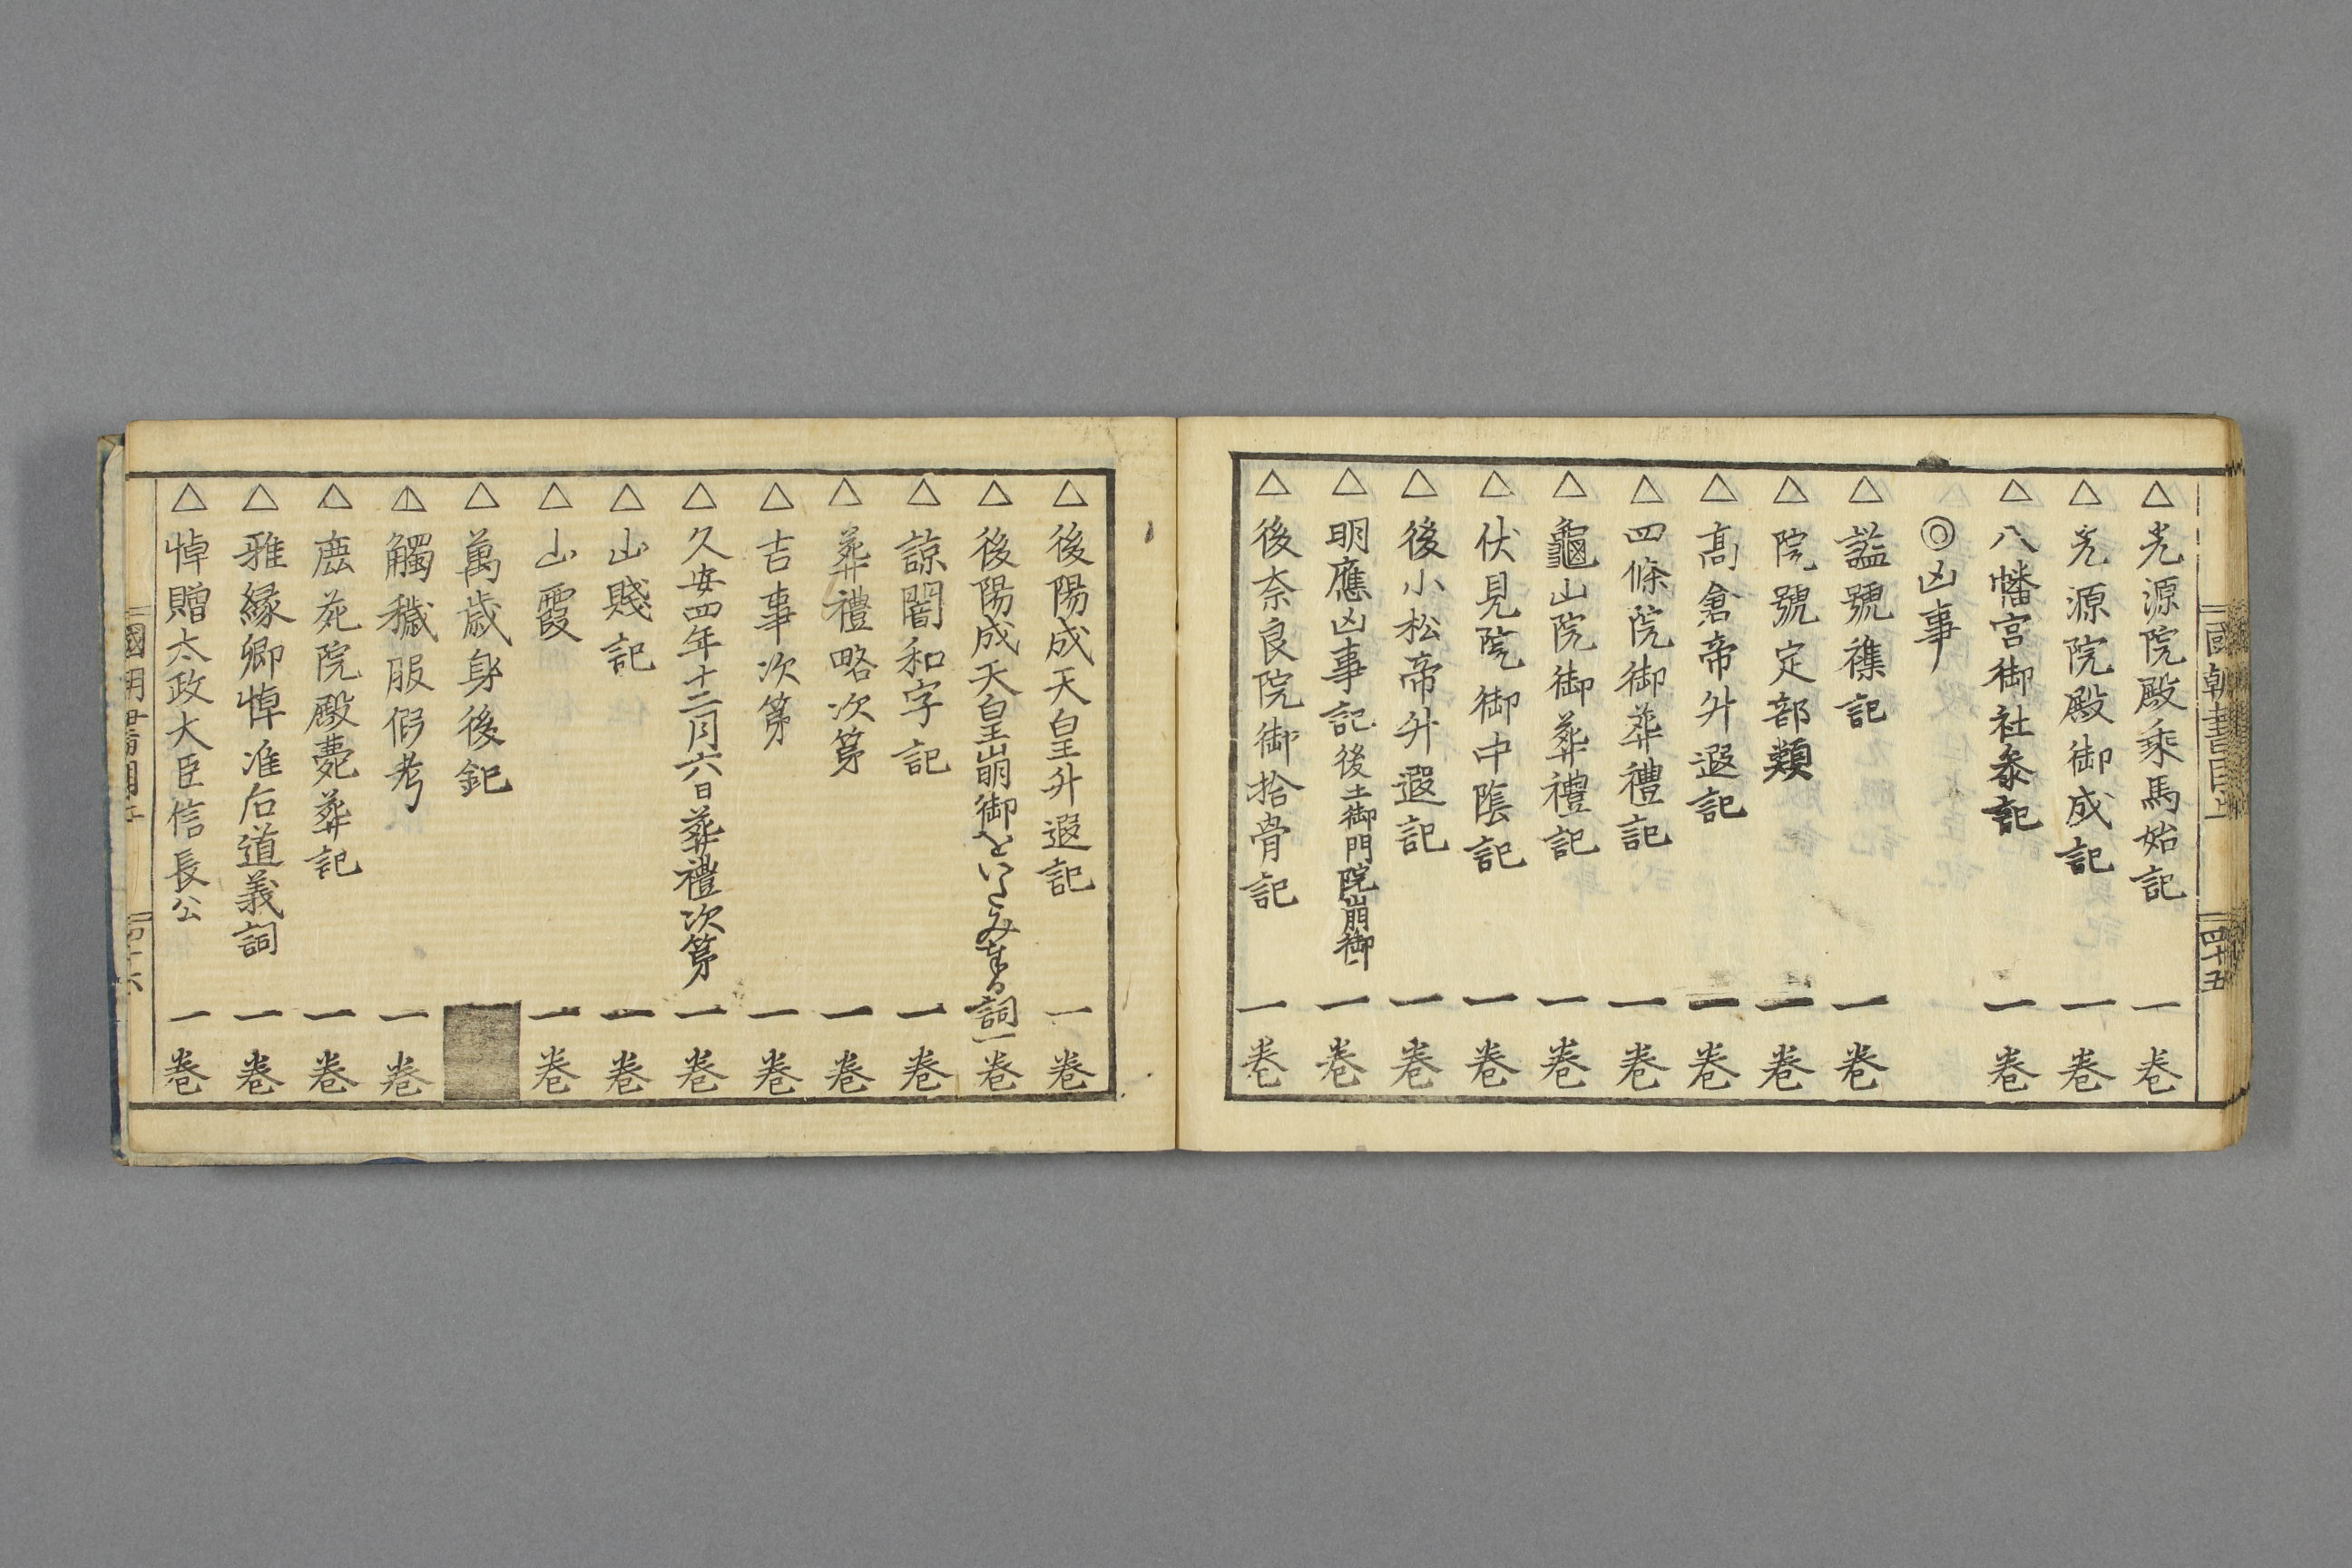 國朝書目
四十五
△光源院殿乘馬始記 一卷
△光源院殿御成記 一卷
△八幡宮御社参記 一卷
◎凶事
△諡號襍記 一卷
△院號定部類 一卷
△髙倉帝升遐記 一卷
△四條院御葬禮記 一卷
△龜山院御葬禮記 一卷
△伏見院御中陰記 一卷
△後小松帝升遐記 一卷
△明應凶事記 後土御門院崩御 一卷
△後奈良院御拾骨記 一卷
△後陽成天皇升遐記 一卷
△後陽成天皇崩御をいたみ奉る詞 一卷
△諒闇和字記 一卷
△葬禮略次第 一卷
△吉事次第 一卷
△久安四年十二月六日葬禮次第 一卷
△山賤記 一卷
△山霞 一卷
△萬歳身後鈀
△觸穢服假考 一卷
△鹿苑院殿薨葬記 一卷
△雅縁卿悼准后道義詞 一卷
△悼贈太政大臣信長公 一卷